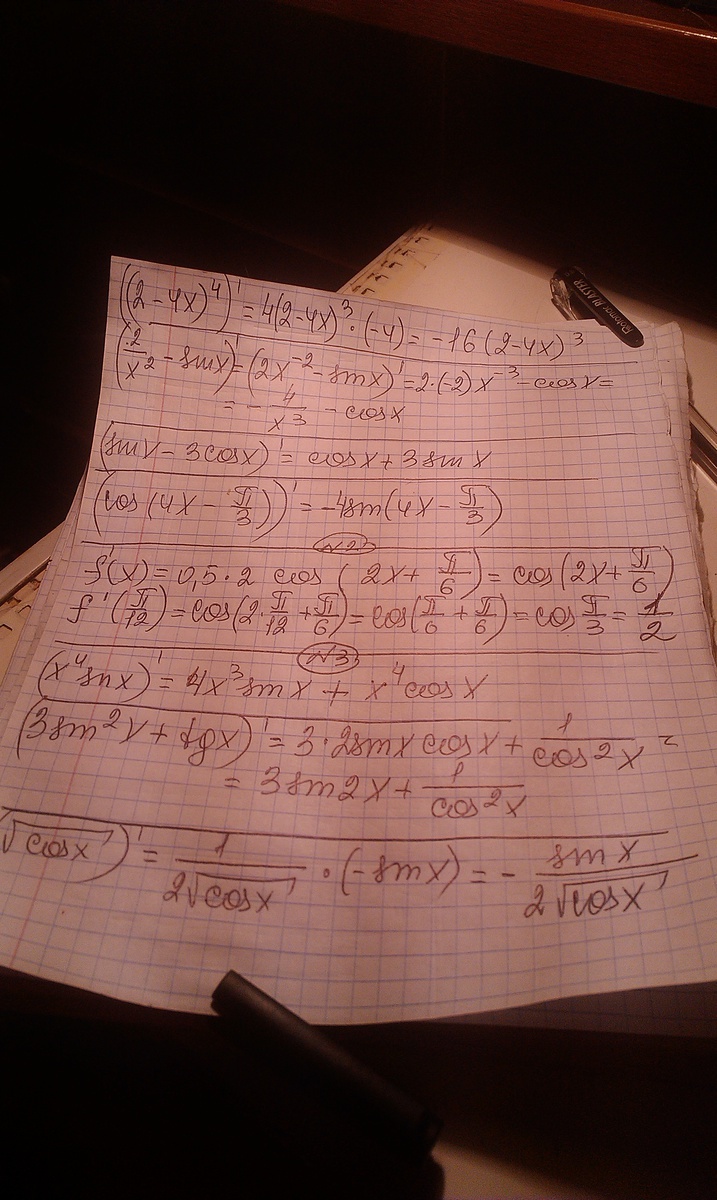 ((2-4x)⁴)' = 4(2-4x)³·(-4) = -16(2-4x)³
(2/x² - sinx)' = (2x⁻² - sinx)' = 2·(-2)x⁻³ - cosx =
= -4/x³ - cosx
(sinx - 3cosx)' = cosx + 3sinx
(cos(4x - π/3))' = -4sin(4x - π/3)
№2
f'(x) = 0,5·2 cos(2x + π/6) = cos(2x + π/6)
f'(π/12) = cos(2·π/12 + π/6) = cos(π/6 + π/6) = cos π/3 = 1/2
№3
(x⁴sinx)' = 4x³sinx + x⁴cosx
(3sin²x + tgx)' = 3·2sinx cosx + 1/cos²x =
= 3sin2x + 1/cos²x
√cosx)' = 1/(2√cosx)·(-sinx) = - sinx/(2√cosx)
Rotomac BLASTER